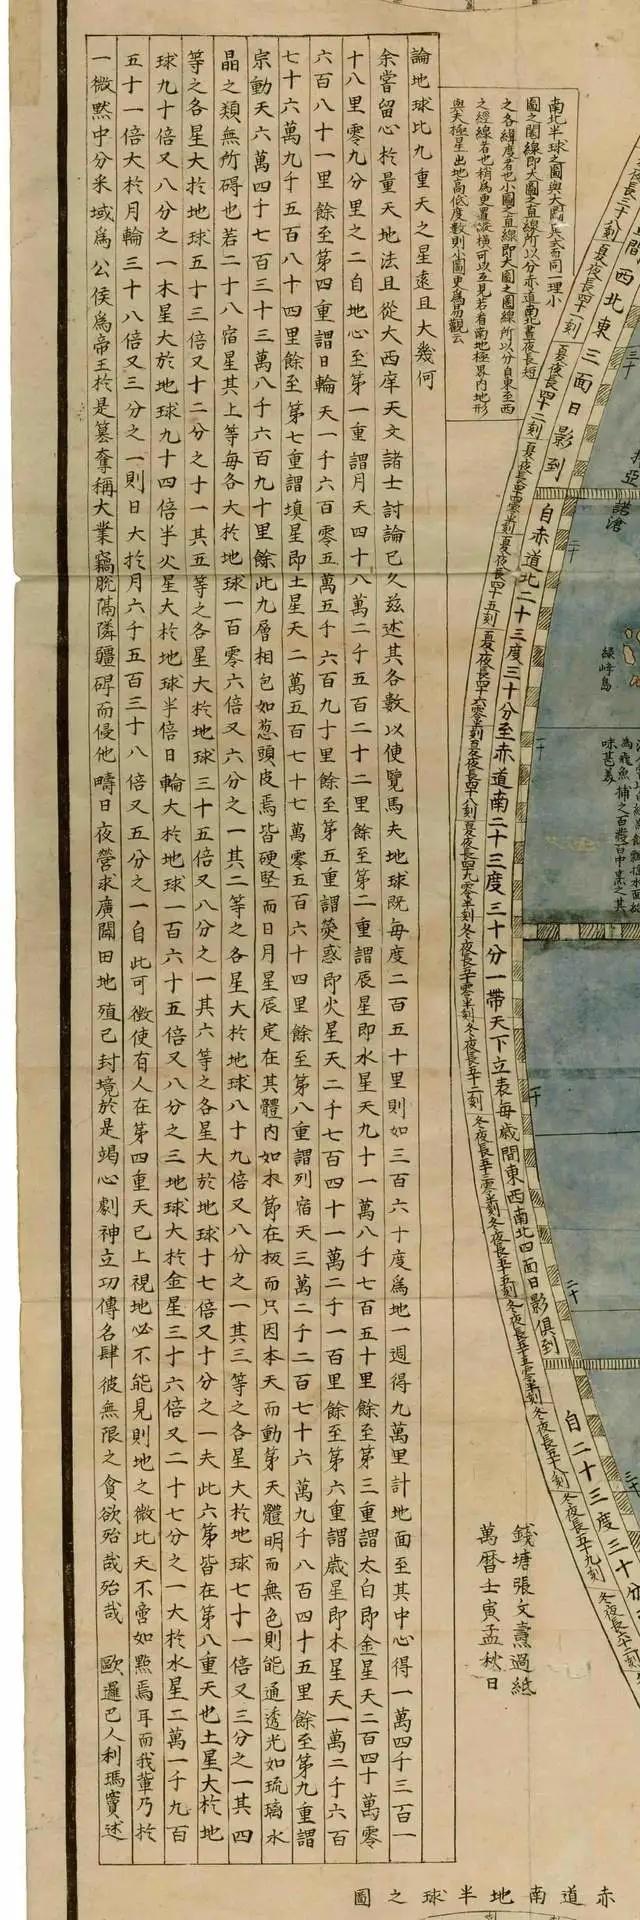 西北東三面日影到
自赤道北二十三度三十分至赤道南二十三度三十分一帶天下立表每歲間東西南北四面日影俱到
自二十三度三十分
夏夜長三十八刻
夏夜長四十一刻
夏夜長四十二刻
夏夜長四十零半刻
夏夜長四十五刻
夏夜長四十六零半刻
夏夜長四十八刻
夏夜長四十九零半刻
冬夜長五十零半刻
冬夜長五十二刻
冬夜長五十三零半刻
冬夜長五十五刻
冬夜長五十五零半刻
冬夜長五十八刻
冬夜長五十九刻
冬夜長六十二刻
綠峰島
為飛魚捕之百發百中漁之其
味甚美
三十
二十
一十
一十
二十
三十
南北半球之圖與大圖異式而同一理小
圖之圈線即大圖之直線所以分赤道南北晝夜長短
之各緯度者也小圖之直線即大圖之圈線所以分自東至西
之經線者也稍為更置縱橫可以互見若看南地極界內地形
與夫極星出地高低度數則小圖更為易觀云
錢塘張文燾過紙
萬曆壬寅孟秋日
論地球比九重天之星遠且大幾何
余嘗留心於量天地法且從大西庠天文諸士討論已久茲述其各數以便覽焉夫地球既每度二百五十里則如三百六十度為地一週得九萬里計地面至其中心得一萬四千三百一
十八里零九分里之二自地心至第一重謂月天四十八萬二千五百二十二里餘至第二重謂辰星即水星天九十一萬八千七百五十里餘至第三重謂太白即金星天二百四十萬零
六百八十一里餘至第四重謂日輪天一千六百零五萬五千六百九十里餘至第五重謂熒惑即火星天二千七百四十一萬二千一百里餘至第六重謂歲星即木星天一萬二千六百
七十六萬九千五百八十四里餘至第七重謂填星即土星天二萬五百七十七萬零五百六十四里餘至第八重謂列宿天三萬二千二百七十六萬九千八百四十五里餘至第九重謂
宗動天六萬四千七百三十三萬八千六百九十里餘此九層相包如葱頭皮焉皆硬堅而日月星辰定在其體內如木節在板而只因本天而動第天體明而無色則能通透光如琉璃水
晶之類無所碍也若二十八宿星其上等每各大於地球一百零六倍又六分之一其二等之各星大於地球八十九倍又八分之一其三等之各星大於地球七十一倍又三分之一其四
等之各星大於地球五十三倍又十二分之十一其五等之各星大於地球三十五倍又八分之一其六等之各星大於地球十七倍又十分之一夫此六第皆在第八重天也土星大於地
球九十倍又八分之一木星大於地球九十四倍半火星大於地球半倍日輪大於地球一百六十五倍又八分之三地球大於金星三十六倍又二十七分之一大於水星二萬一千九百
五十一倍大於月輪三十八倍又三分之一則日大於月六千五百三十八倍又五分之一自此可徵使有人在第四重天已上視地必不能見則地之微比天不啻如點焉耳而我輩乃於
一微點中分采域為公侯為帝王於是篡奪稱大業竊脫隔隣疆碍而侵他疇日夜營求廣闢田地殖已封境於是竭心劇神立功傳名肆彼無限之貪欲殆哉殆哉　歐邏巴人利瑪竇述
赤道南地半球之圖